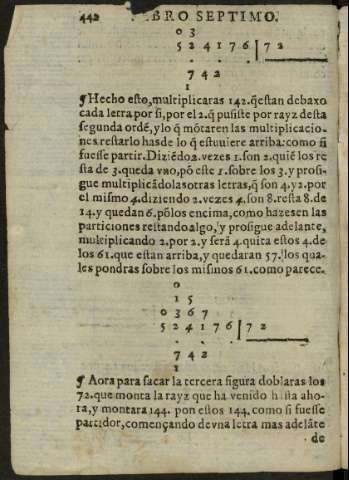 442 LIBRO SEPTIMO.
0 3
5 2 4 1 7 6 | 7 2
7 4 2
1
¶ Hecho esto, multiplicaras 142. q̃ estan debaxo
cada letra por si, por el 2. q̃ pusiste por rayz desta
segunda ordẽ, y lo q̃ mõtaren las multiplicacio-
nes restarlo has de lo q̃ estuuiere arriba: como si
fuesse partir. Diziẽdo 2. vezes 1. son 2. quiẽ los re
sta de 3. queda vno, põ este 1. sobre los 3. y prosi-
gue multiplicãdo las otras letras, q̃ son 4. y 2. por
el mismo 4. diziendo 2. vezes 4. son 8. resta 8. de
14. y quedan 6. põ los encima, como hazes en las
particiones restando algo, y prosigue adelante,
multiplicando 2. por 2. y serã 4. quita estos 4. de
los 61. que estan arriba, y quedaran 57. los qua-
les pondras sobre los mismos 61. como parece.
0
1 5
0 3 6 7
5 2 4 1 7 6 | 7 2
7 4 2
1
¶ Aora para sacar la tercera figura doblaras los
72. que monta la rayz que ha venido hasta aho-
ra, y montara 144. pon estos 144. como si fuesse
partidor, començando de vna letra mas adelãte
de